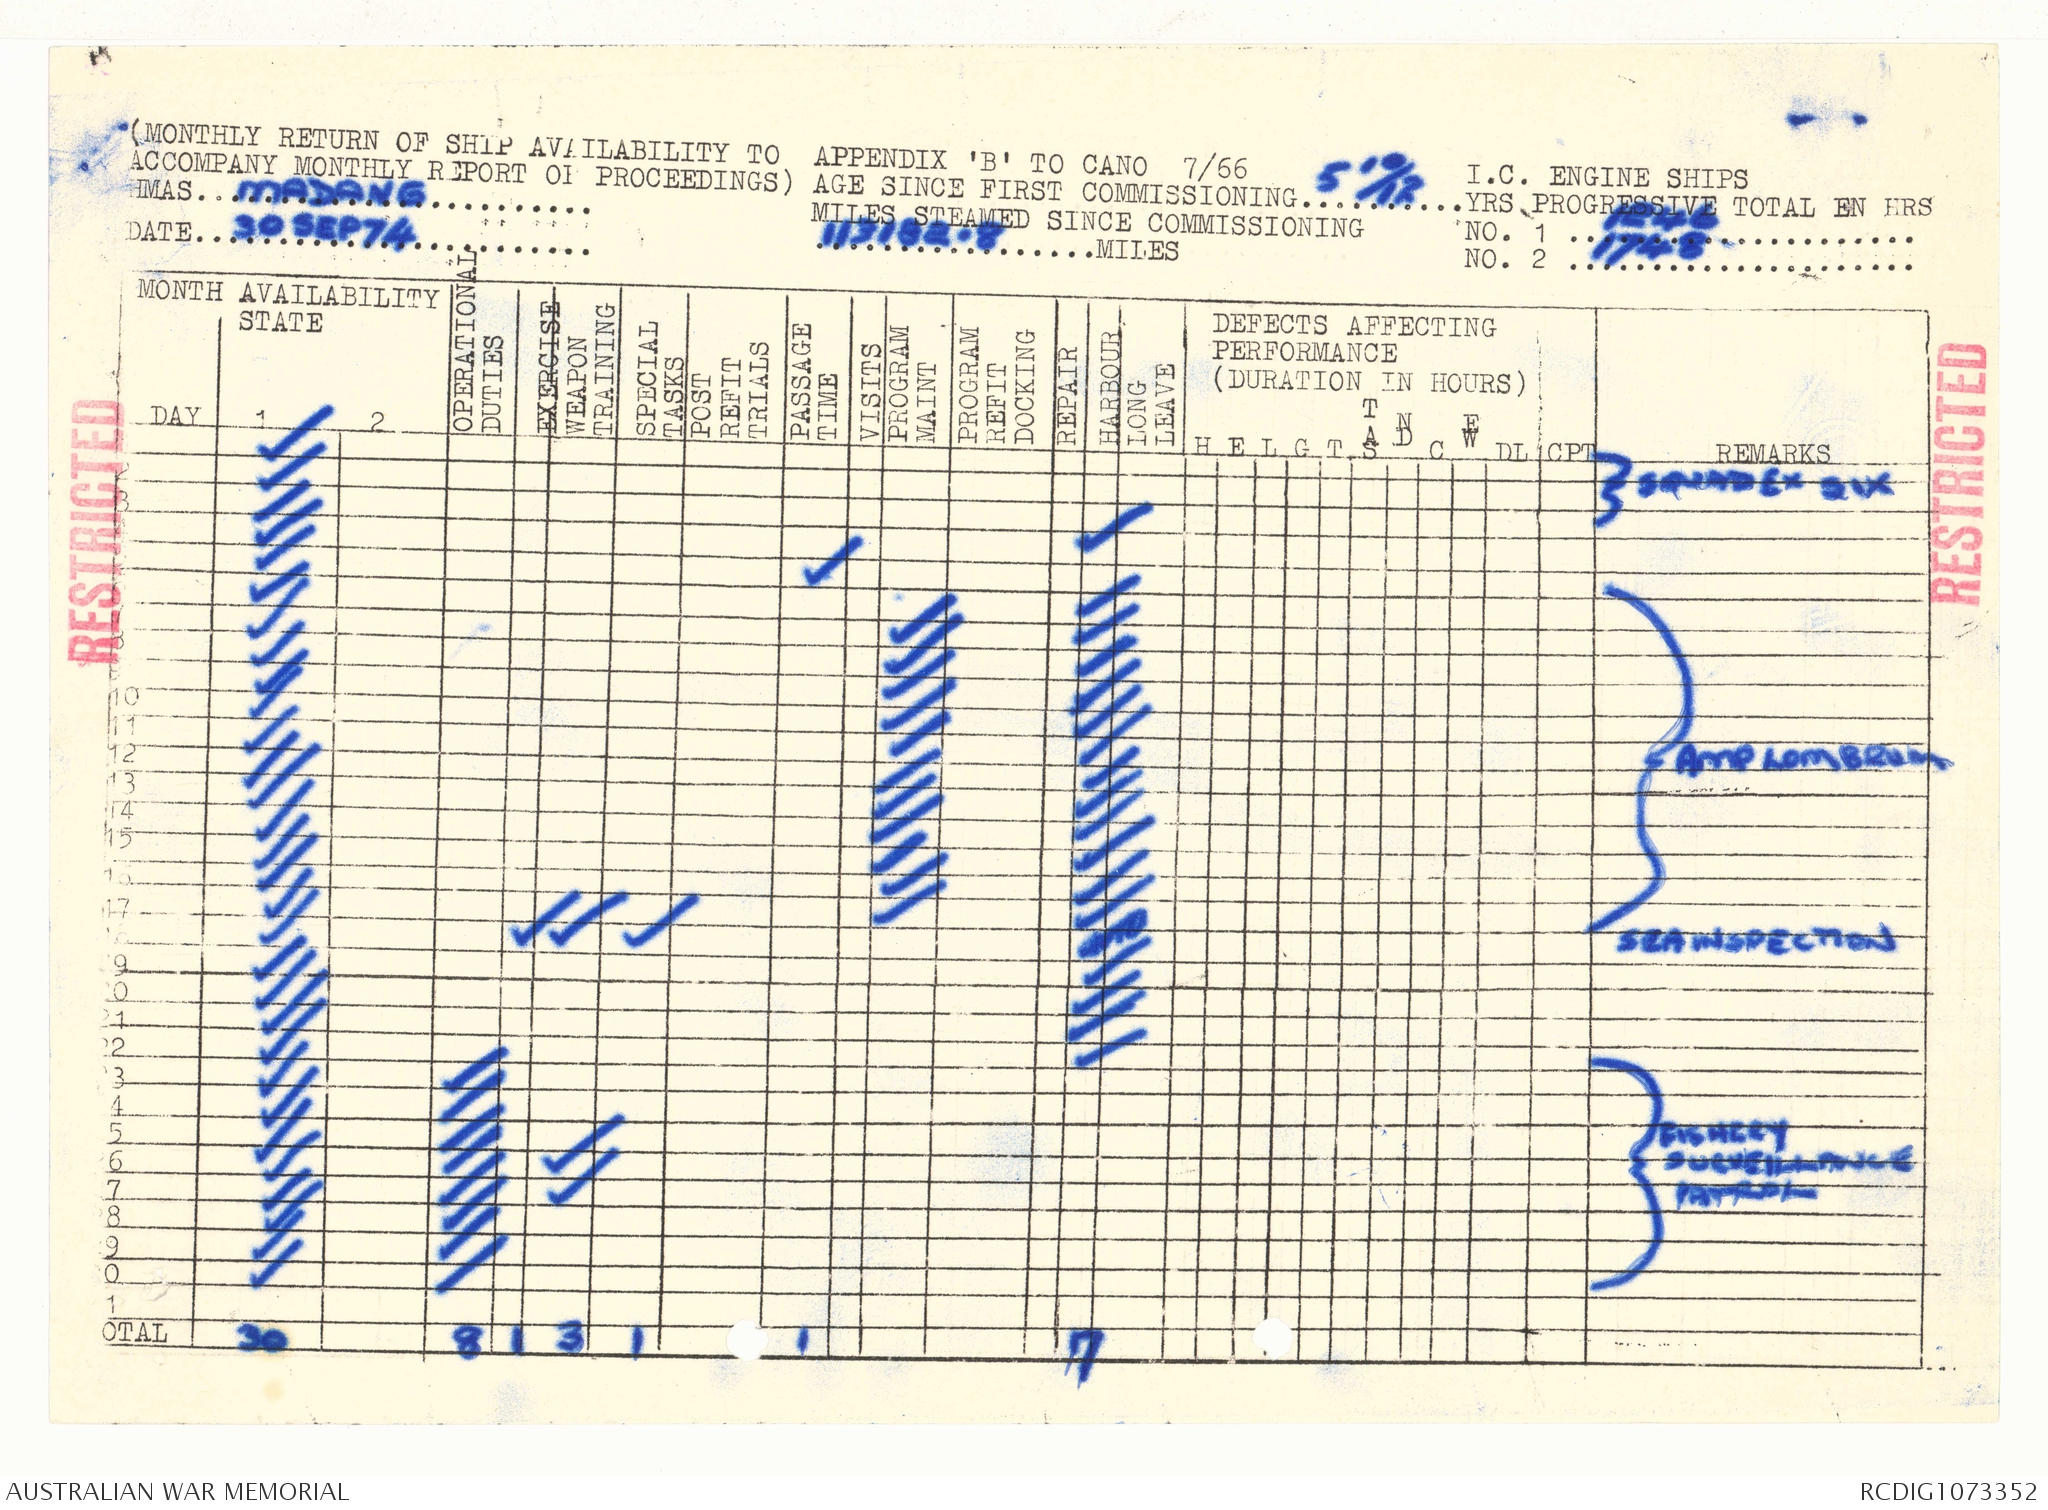 (MONTHLY RETURN OF SHIP AVAILABILITY TO
ACCOMPANY MONTHLY REPORT OF PROCEEDINGS)
HMAS.. MADANG
DATE.. 30 SEP 74
APPENDIX 'B' TO CANO 7/66
AGE SINCE FIRST COMMISSIONING 5 10/12 YRS
MILES STEAMED SINCE COMMISSIONING
113182.8 MILES
I.C. ENGINE SHIPS
PROGRESSIVE TOTAL EN HRS
NO. 1
NO. 2 1748
MONTH AVAILABILITY
STATE
DAY 1 2
OPERATIONAL
DUTIES
EXERCISE
WEAPON
TRAINING
SPECIAL
TASKS
POST
REFIT
TRIALS
PASSAGE
TIME
VISITS
PROGRAM
MAINT
PROGRAM
REFIT
DOCKING
REPAIR
HARBOUR
LONG
LEAVE
DEFECTS AFFECTING
PERFORMANCE
(DURATION IN HOURS)
H E L G T TAS ND C EW DL CPT
REMARKS
SQUADEX SIX
10
11
12
AMP LOMBRUM
13
14
15
16
17
SEA INSPECTION
18
9
0
21
2
3
4
5
FISHERY
6
SURVEILLANCE
7
PATROL
8
9
0
1
OTAL 30 8 1 3 1 1 7
RESTRICTED
RESTRICTED
AUSTRALIAN WAR MEMORIAL
RCDIG1073352